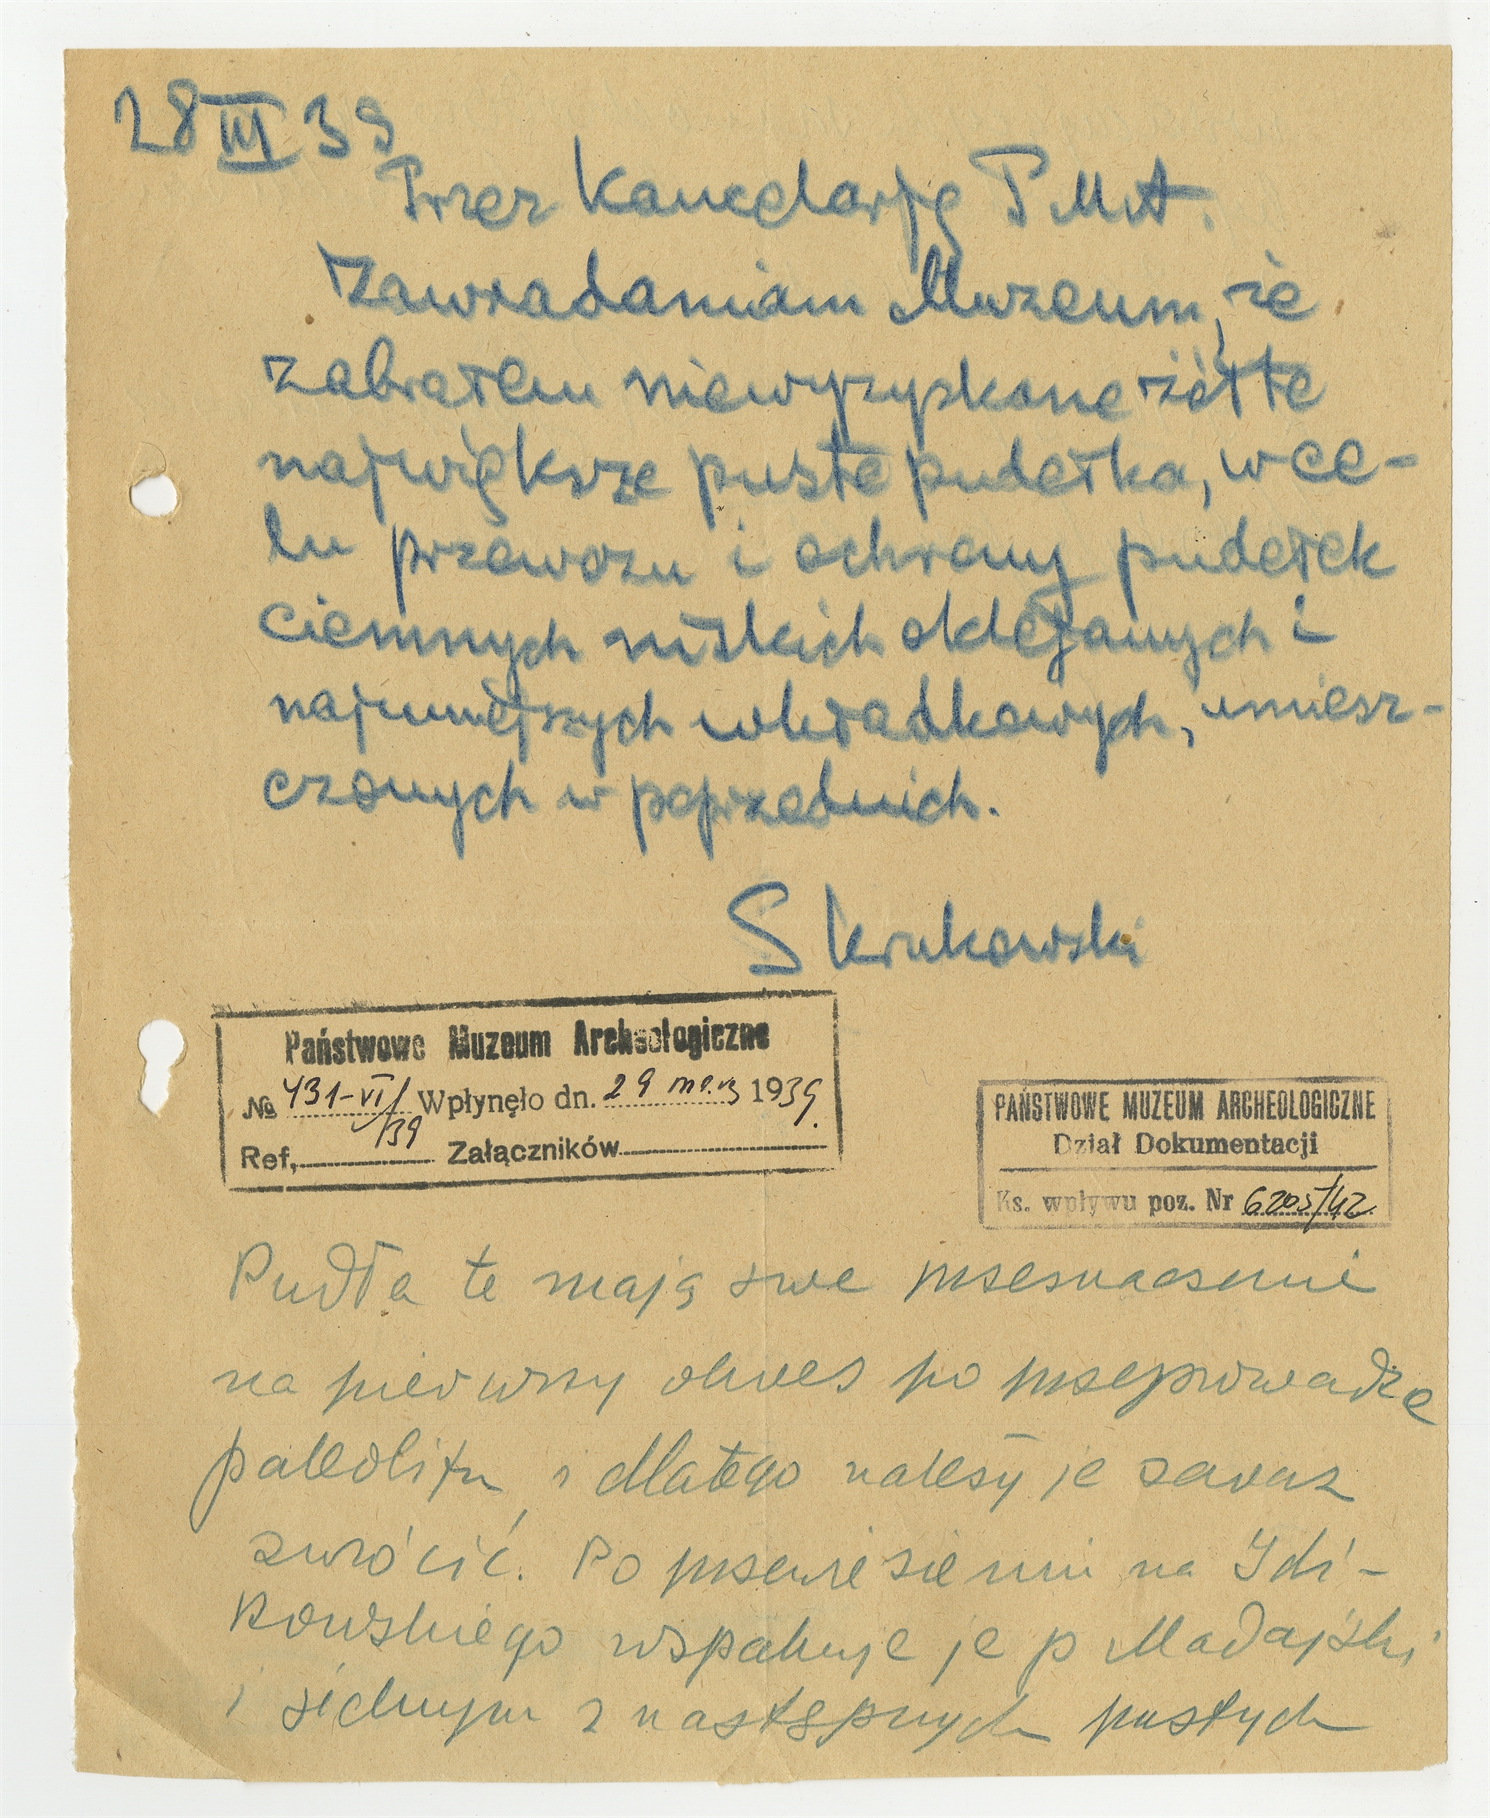 28 III 39
Przez Kancelarję P.M.A.
Zawiadamiam Muzeum, że
zabrałem niewyzyskane żółte
największe puste pudełka, w ce-
lu przewozu i ochrony pudełek
ciemnych niskich oklejanych i
najmniejszych wkładkowych, umiesz-
czonych w poprzednich.
S Krukowski
Państwowe Muzeum Archeologiczne
№ 431-VI/39 Wpłynęło dn. 29 marz 1939.
Ref. Załączników
PAŃSTWOWE MUZEUM ARCHEOLOGICZNE
Dział Dokumentacji
Ks. wpływu poz. Nr 6205/42
Pudła te mają swe przeznaczenie
na pierwszy okres po przeprowadzce
paleolitu i dlatego należy je zaraz
zwrócić. Po przewiezieniu na Idzi-
kowskiego wspakuje je p Madajski
i z następnych pustych